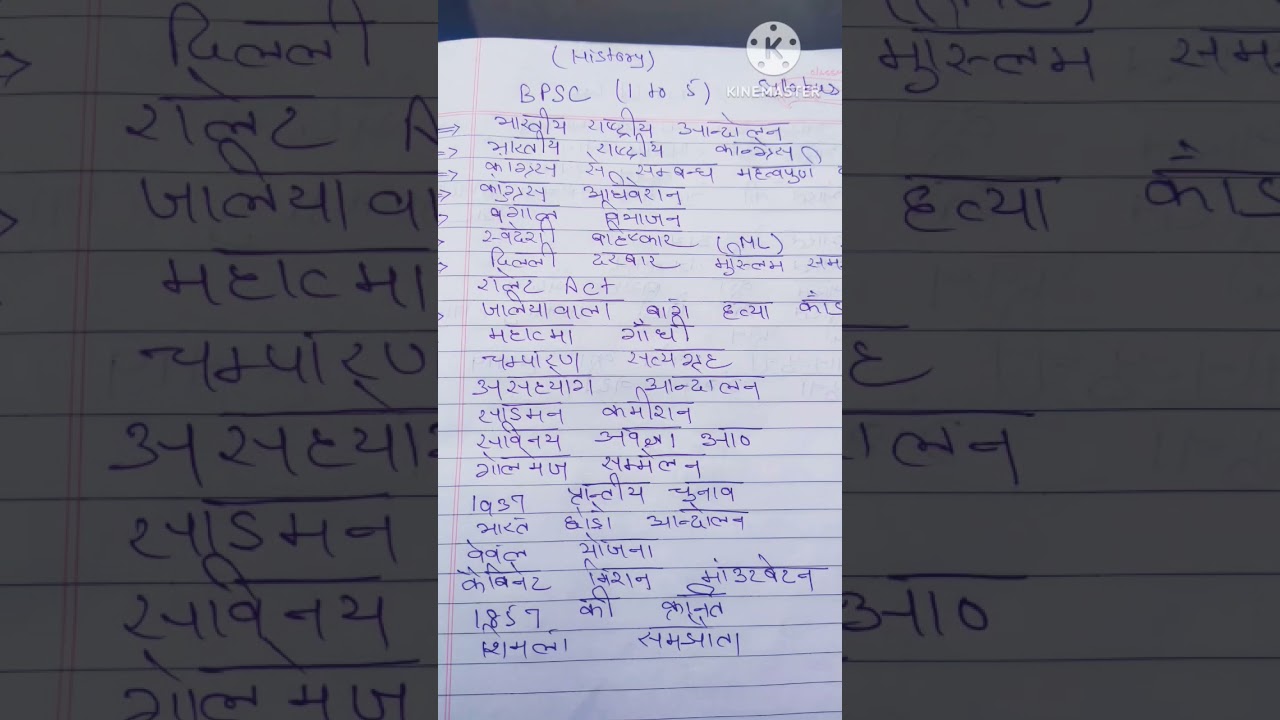 (History)
BPSC (1 to 5) Syllabus
KINEMASTER
=> भारतीय राष्ट्रीय आन्दोलन
=> भारतीय राष्ट्रीय कान्ग्रेस
=> कांग्रेस से सम्बन्ध महत्वपुर्ण
=> कांग्रेस अधिवेशन
बंगाल विभाजन
स्वदेशी बहिष्कार (ML)
=> दिल्ली दरबार मुस्लिम सम
रॉलेट Act
जालियावाला बाग हत्या काँड
महात्मा गाँधी
चम्पारण सत्याग्रह
असहयोग आन्दोलन
साइमन कमीशन
सविनय अवज्ञा आ०
गोलमेज सम्मेलन
1937 प्रान्तीय चुनाव
भारत छोड़ो आन्दोलन
वेवेल योजना
कैबिनेट मिशन मांउटबेटन
1857 की क्रान्ति
शिमला समझौता